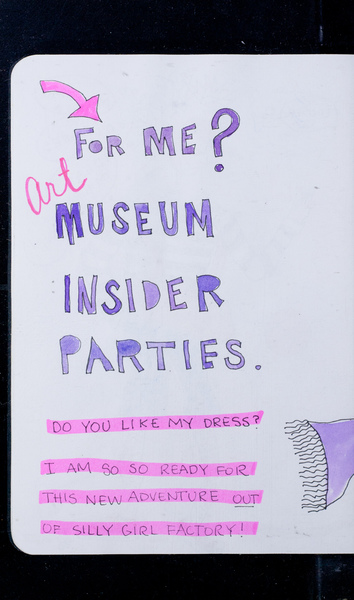 FOR ME?
Art
MUSEUM
INSIDER
PARTIES.
DO YOU LIKE MY DRESS?
I AM SO SO READY FOR
THIS NEW ADVENTURE OUT
OF SILLY GIRL FACTORY!